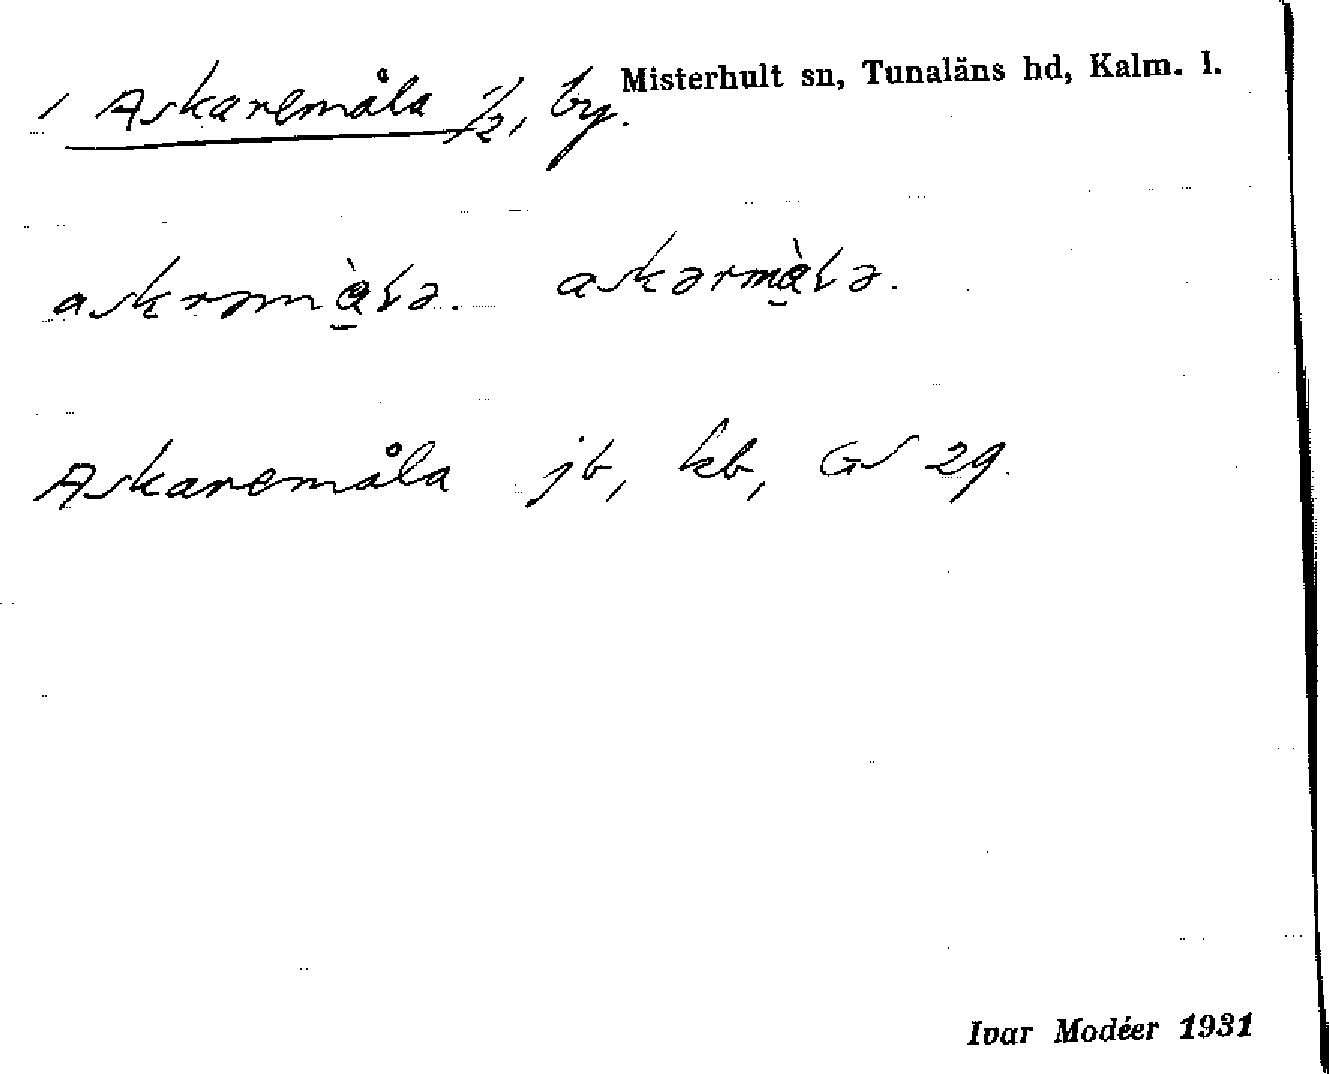 / Askaremåla 1/2, by. Misterhult sn, Tunaläns hd, Kalm. l.
askrəmàla. askərmàla.
Askaremåla jb, kb, GS 29.
Ivar Modéer 1931